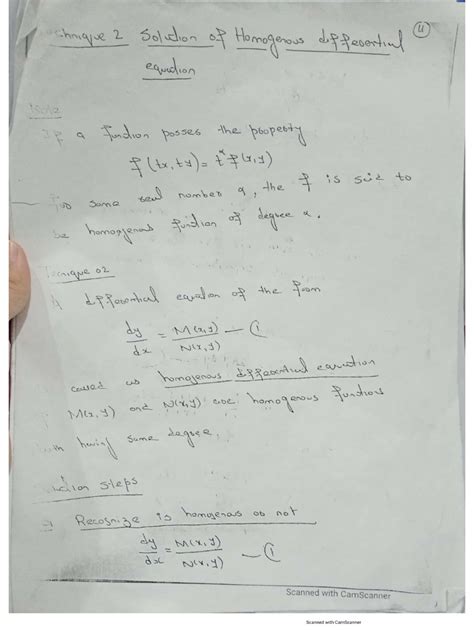 chnique 2 Solution of Homogenous differential
equation
4
Note
If a function posses the property
f(tx, ty) = t^α f(x,y)
for some real number α, the f is said to
be homogenous function of degree α.
chnique 02
A differential equation of the from
dy/dx = M(x,y)/N(x,y) — ①
called as homogenous differential equation
M(x,y) and N(x,y) are homogenous functions
having same degree.
ution steps
Recognize is homogenous or not
dy/dx = M(x,y)/N(x,y) — ①
Scanned with CamScanner
Scanned with CamScanner